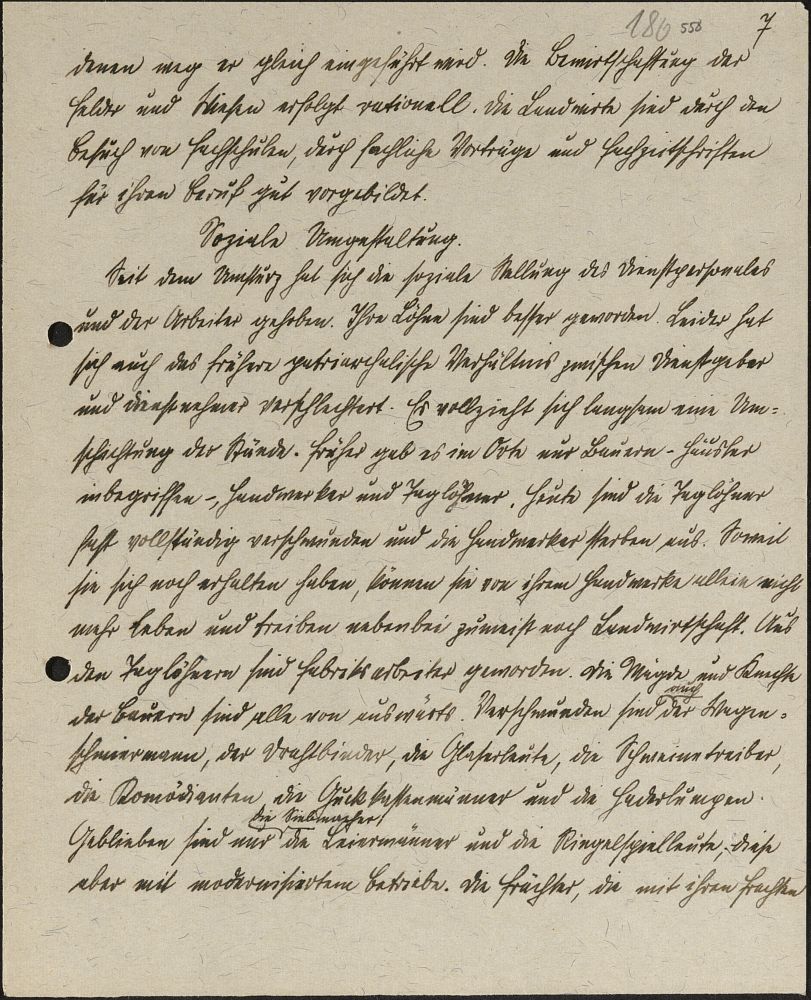 186 558 7
denen weg er gleich eingeführt wird. Die Bewirtschaftung der
Felder und Wiesen erfolgt rationell. Die Landwirte sind durch den
Besuch von Fachschulen, durch fachliche Vorträge und Fachzeitschriften
für ihren Beruf gut vorgebildet.
Soziale Umgestaltung.
Seit dem Umsturz hat sich die soziale Stellung des Dienstpersonales
und der Arbeiter gehoben. Ihre Löhne sind besser geworden. Leider hat
sich auch das frühere patriarchalische Verhältnis zwischen Dienstgeber
und Dienstnehmer verschlechtert. Es vollzieht sich langsam eine Um=
schichtung der Stände. Früher gab es im Orte nur Bauern - Häusler
inbegriffen -, Handwerker und Taglöhner. Heute sind die Taglöhner
fast vollständig verschwunden und die Handwerker sterben aus. Soweit
sie sich noch erhalten haben, können sie von ihrem Handwerke allein nicht
mehr leben und treiben nebenbei zumeist noch Landwirtschaft. Aus
den Taglöhnern sind Fabriksarbeiter geworden. Die Mägde und Knechte
der Bauern sind alle von auswärts. Verschwunden sind auch der Wagen=
schmiermann, der Drahtbinder, die Glaserleute, die Schweinetreiber,
die Komödianten, die Guckkastenmänner und die Haderlumpen.
Geblieben sind nur die Siebmacher, die Leiermänner und die Ringelspielleute, diese
aber mit modernisiertem Betriebe. Die Frächter, die mit ihren Frachten